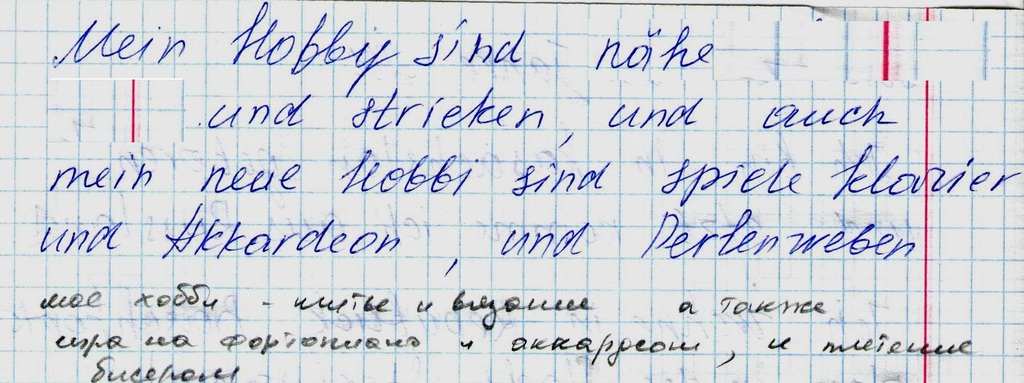 Mein Hobby sind nähe
und stricken, und auch
mein neue Hobbi sind spiele Klavier
und Akkardeon, und Perlenweben
мое хобби - шитье и вязание а также
игра на фортопиано и аккардеоне, и плетение
бисером